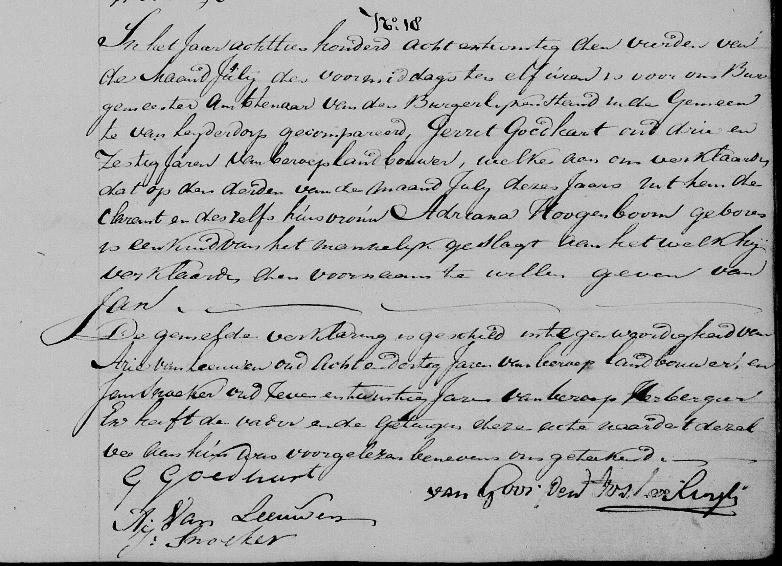 No. 18
In het Jaar achttien honderd acht en twintig den vierden van
de maand July des voormiddags ten elf uren is voor ons Bur
gemeester Ambtenaar van den Burgerlyken stand in de Gemeen
te van Leyderdorp gecompareerd, Gerrit Goedhart oud drie en
Zestig Jaren van beroep landbouwer, welke aan ons verklaarde
dat op den derden van de maand July dezes Jaars uit hem de
Clarant en deszelfs huisvrouw Adriana Hoogenboom geboren
is een kind van het mannelijk geslagt aan het welk hij
verklaarde den voornaam te willen geven van
Jan
De gemelde verklaring is geschied in tegenwoordigheid van
Arie van Leeuwen oud acht en dertig Jaren van beroep landbouwer en
Jan Snoeker oud Zeven en twintig Jaren van beroep Herbergier
En heeft de vader en de getuigen deze acte naar dat dezel
ve aan hun was voorgelezen benevens ons getekend.
G Goedhart
van
A: Van Leeuwen
J: Snoeker